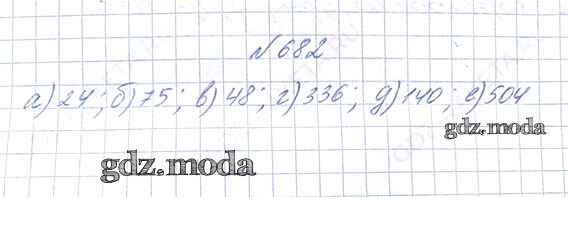 №682
а) 24; б) 75; в) 48; г) 336; д) 140; е) 504
gdz.moda
gdz.moda